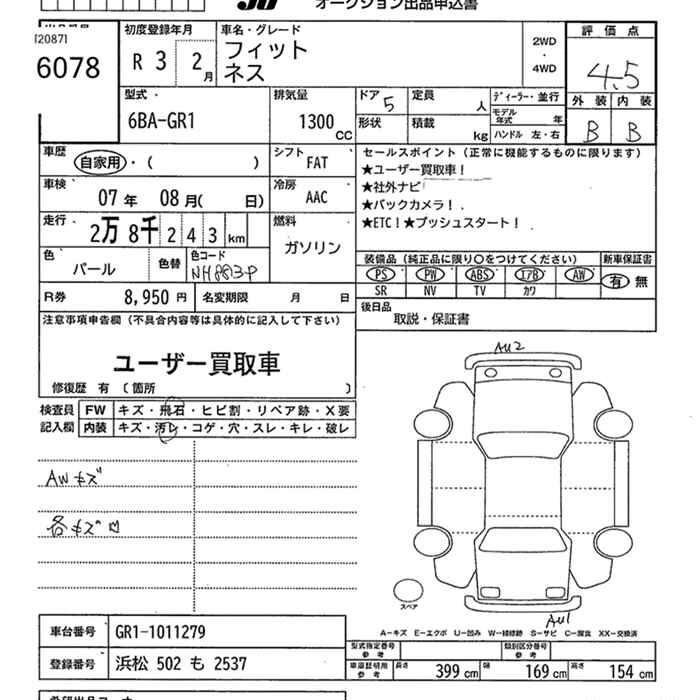 オークション出品申込書
120871
6078
初度登録年月
R 3 2月
車名・グレード
フィット
ネス
2WD
・
4WD
評価点
4.5
型式
6BA-GR1
排気量
1300 CC
ドア 5
定員 人
ディーラー・並行
モデル年式 年
形状
積載 kg
ハンドル 左・右
外装 内装
B B
車歴
自家用・( )
シフト
FAT
車検
07年 08月( 日)
冷房
AAC
走行
2万 8千 2 4 3 km
燃料
ガソリン
色
パール
色替
色コード
NH883P
R券 8,950円
名変期限 月 日
セールスポイント (正常に機能するものに限ります)
★ユーザー買取車!
★社外ナビ
★バックカメラ!
★ETC!★プッシュスタート!
装備品 (純正品に限り○をつけてください)
新車保証書
PS PW ABS エアB AW
有 無
SR NV TV カワ
後日品
取説・保証書
注意事項申告欄 (不具合内容等は具体的に記入して下さい)
ユーザー買取車
修復歴 有 〔箇所 〕
検査員 FW キズ・飛石・ヒビ割・リペア跡・X要
記入欄 内装 キズ・汚レ・コゲ・穴・スレ・キレ・破レ
AWキズ
各キズ凹
AU2
AU1
スペア
A-キズ E-エクボ U-凹み W-補修跡 S-サビ C-腐食 XX-交換済
車台番号 GR1-1011279
登録番号 浜松 502 も 2537
型式指定番号
参考
類別区分番号
参考
車庫証明用
参考
長さ 399 cm 幅 169 cm 高さ 154 cm